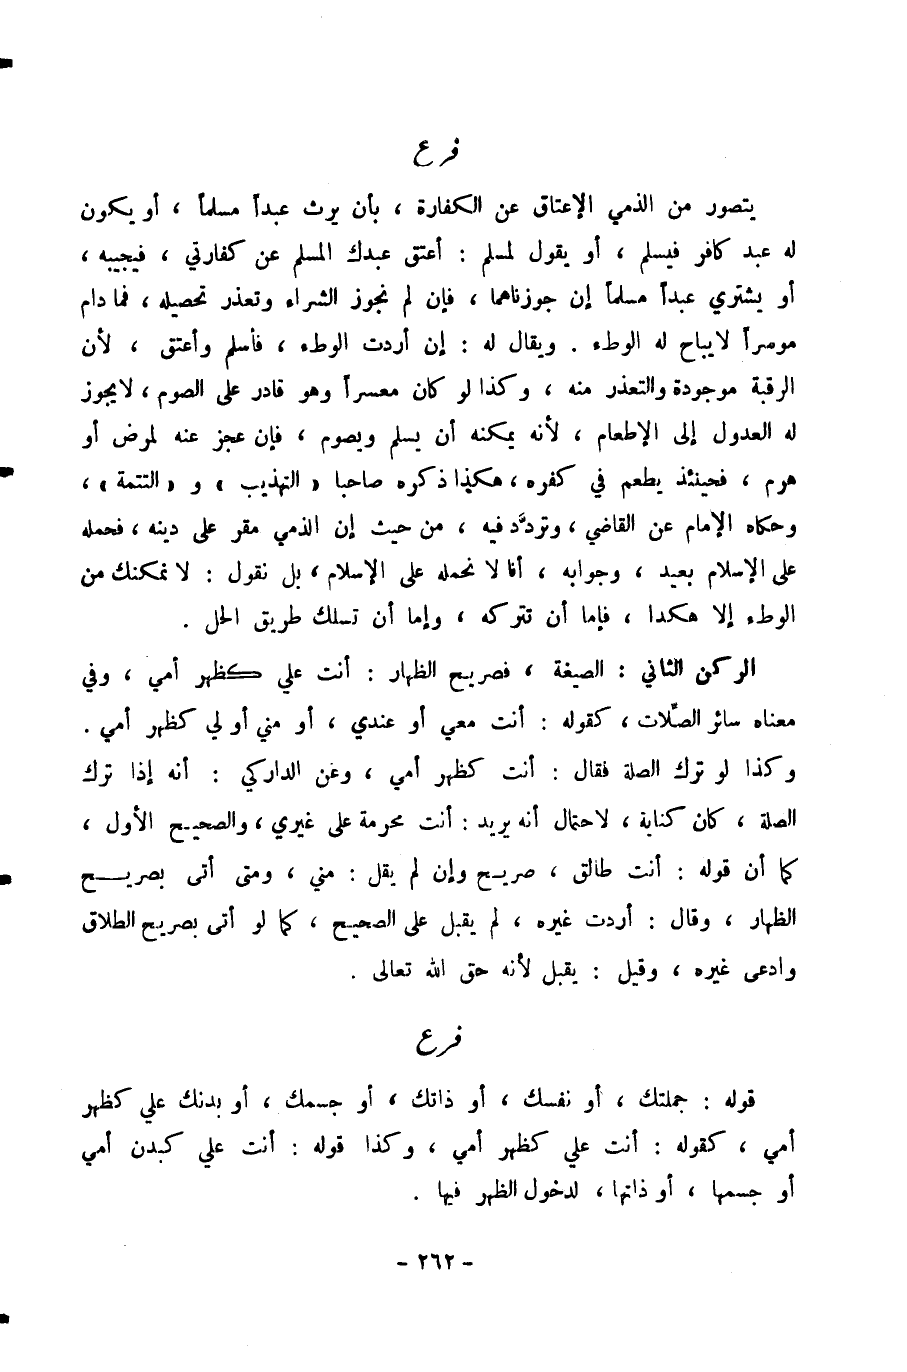 فرع
يتصور من الذمي الإعتاق عن الكفارة ، بأن يرث عبداً مسلماً ، أو يكون
له عبد كافر فيسلم ، أو يقول لمسلم : أعتق عبدك المسلم عن كفارتي ، فيجيبه ،
أو يشتري عبداً مسلماً إن جوزناهما ، فإن لم نجوز الشراء وتعذر تحصيله ، فما دام
موسراً لايباح له الوطء . ويقال له : إن أردت الوطء ، فأسلم وأعتق ، لأن
الرقبة موجودة والتعذر منه ، وكذا لو كان معسراً وهو قادر على الصوم ، لايجوز
له العدول إلى الإطعام ، لأنه يمكنه أن يسلم ويصوم ، فإن عجز عنه لمرض أو
هرم ، فحينئذ يطعم في كفره ، هكذا ذكره صاحبا « التهذيب » و « التتمة » ،
وحكاه الإمام عن القاضي ، وتردَّد فيه ، من حيث إن الذمي مقر على دينه ، فحمله
على الإسلام بعيد ، وجوابه ، أنا لا نحمله على الإسلام ، بل نقول : لا نمكنك من
الوطء إلا هكذا ، فإما أن تتركه ، وإما أن تسلك طريق الحل .
الركن الثاني : الصيغة ، فصريح الظهار : أنت علي كظهر أمي ، وفي
معناه سائر الصِّلات ، كقوله : أنت معي أو عندي ، أو مني أو لي كظهر أمي .
وكذا لو ترك الصلة فقال : أنت كظهر أمي ، وعن الداركي : أنه إذا ترك
الصلة ، كان كناية ، لاحتمال أنه يريد : أنت محرمة على غيري ، والصحيح الأول ،
كما أن قوله : أنت طالق ، صريح وإن لم يقل : مني ، ومتى أتى بصريح
الظهار ، وقال : أردت غيره ، لم يقبل على الصحيح ، كما لو أتى بصريح الطلاق
وادعى غيره ، وقيل : يقبل لأنه حق الله تعالى .
فرع
قوله : جملتك ، أو نفسك ، أو ذاتك ، أو جسمك ، أو بدنك علي كظهر
أمي ، كقوله : أنت علي كظهر أمي ، وكذا قوله : أنت علي كبدن أمي
أو جسمها ، أو ذاتها ، لدخول الظهر فيها .
- ٢٦٢ -